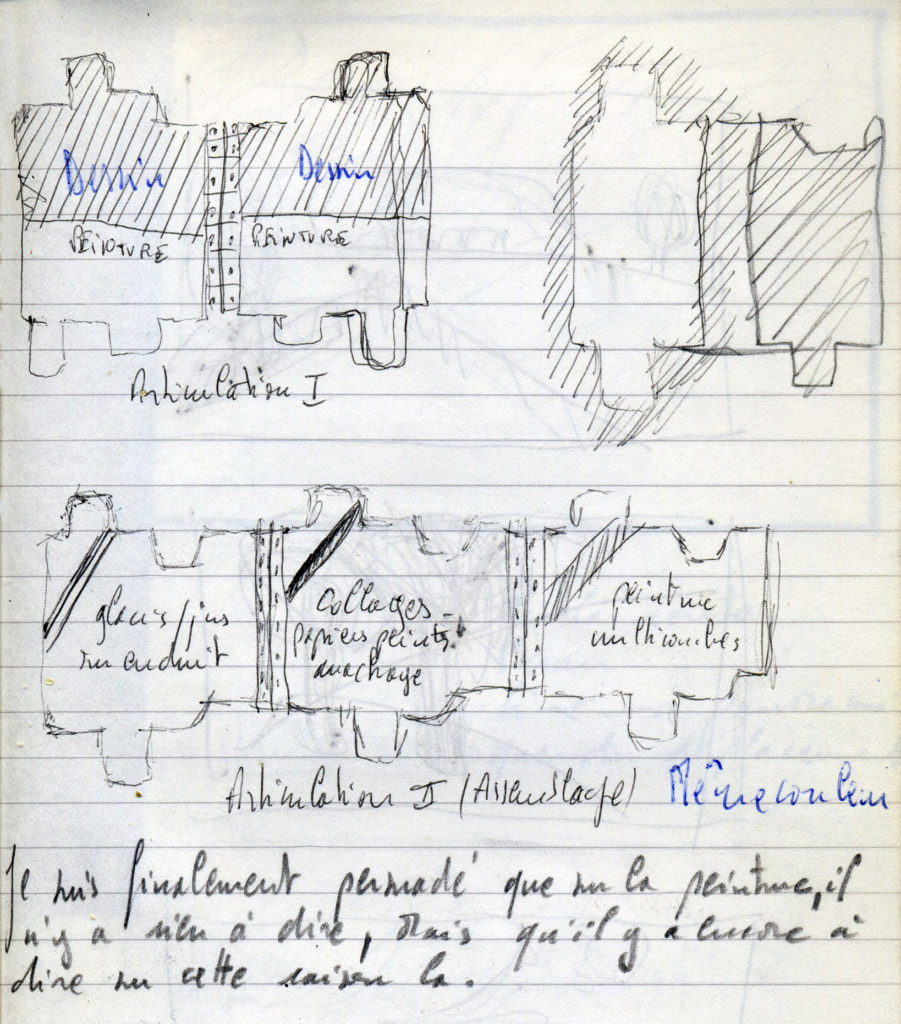 Dessin Dessin
PEINTURE PEINTURE
Articulation I
glacis/jus
sur enduit
collages
papiers peints
arrachage
peinture
multicouches
Articulation II (Assemblage) Même couleur
Je suis finalement persuadé que sur la peinture, il
n'y a rien à dire, mais qu'il y a encore à
dire sur cette raison là.